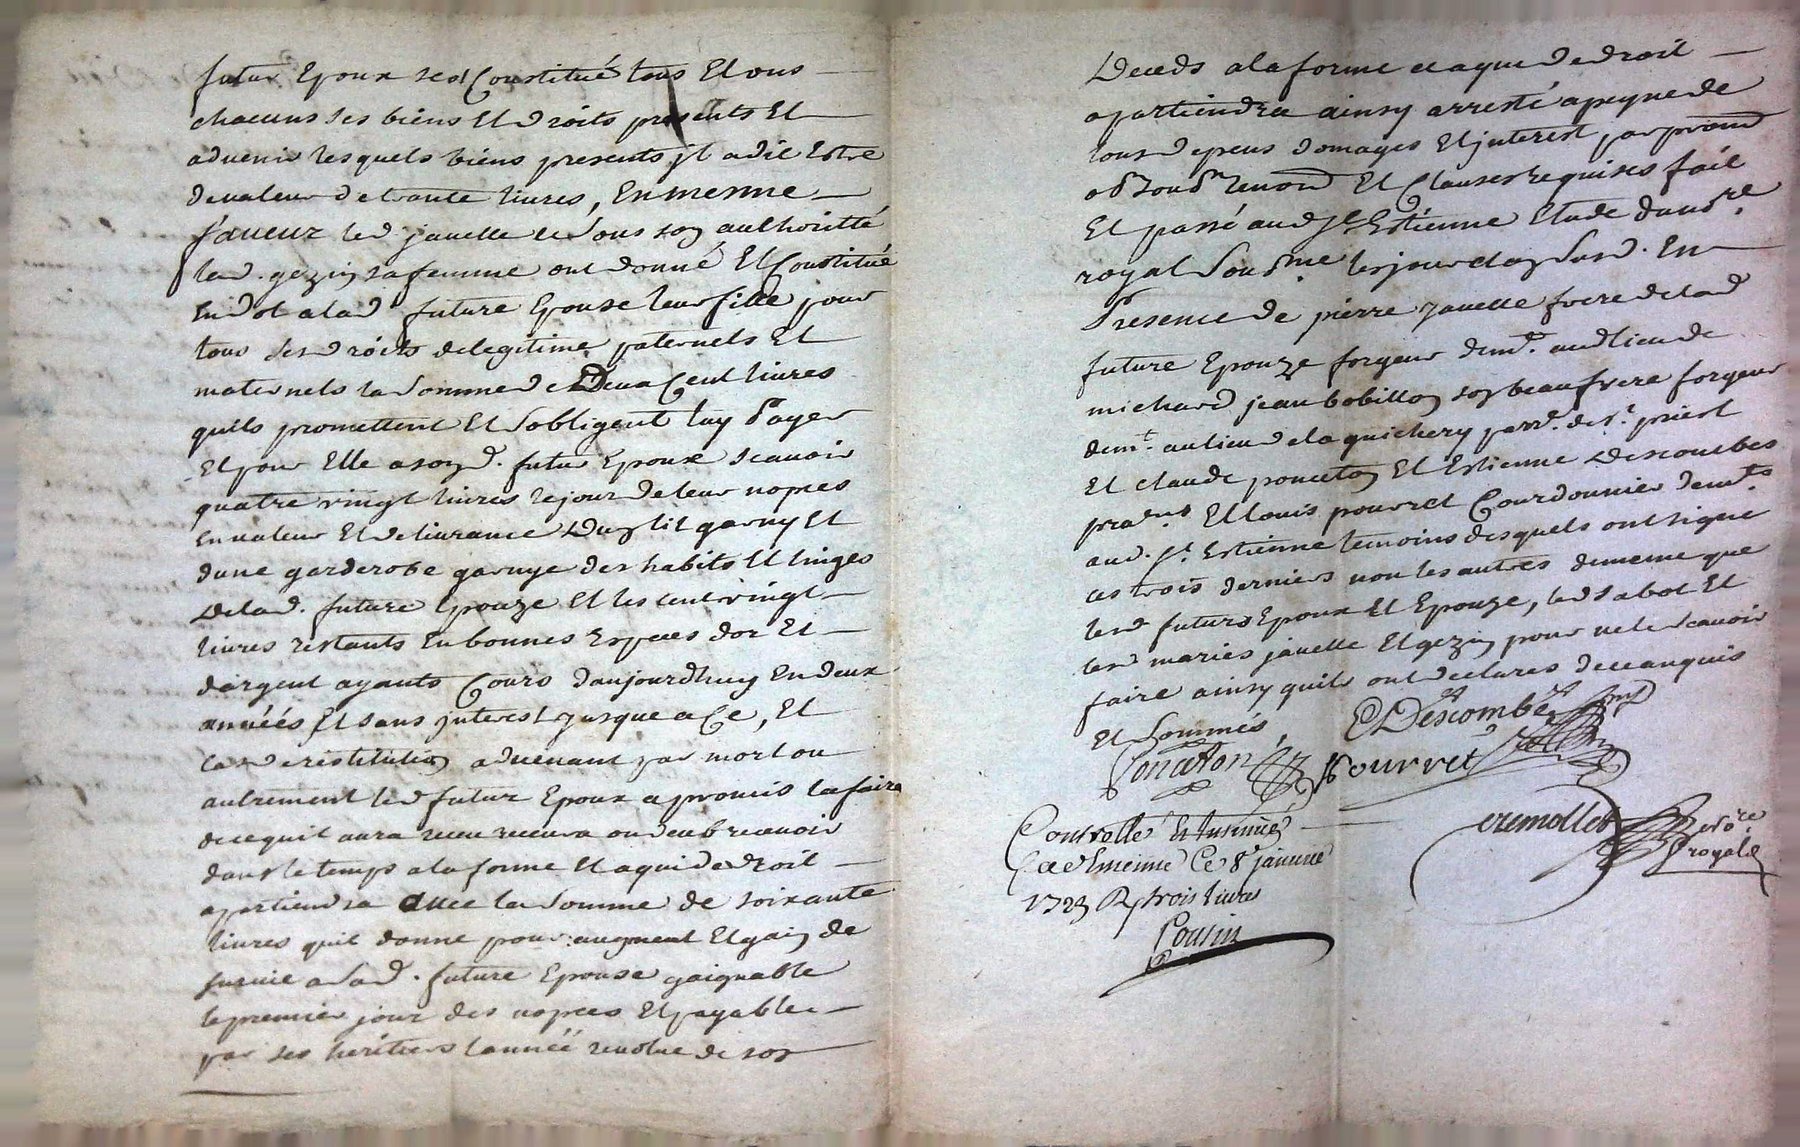 futur Epoux sest Constitué tous Et uns
chacuns ses biens Et droits presents Et
advenir lesquels biens presents jl a dit Estre
de valeur de trante livres, En mesme
faveur led javelle et sous son authoritté
lad. gezin sa femme ont donné Et Constitué
En dot a lad future Epouse leur fille pour
tous ses droits de legitime paternels Et
maternels la somme de Deux Cent livres
quils promettent Et sobligent luy Payer
Et pour Elle a sond. futur Epoux scavoir
quatre vingt livres le jour de leur nopces
En valeur Et delivrance Dun lit garny Et
dune garderobe garnye des habits Et linges
de lad. future Epouze Et les cent vingt
livres restants En bonnes Especes dor Et
dargent ayants Cours daujourdhuy En deux
années Et sans jnterest jusque a Ce, Et
Cas de restitution advenant par mort ou
autrement led futur Epoux a promis la faire
de ce quil aura receu recevra ou deub recevoir
dans le temps a la forme Et a qui de droit
apartiendra avec la somme de soixante
livres quil donne pour augment Et gain de
survie a sad. future Epouse gaignable
le premier jour des nopces Et payable
par ses heritiers lannéé revolue de son
Deceds a la forme et a qui de droit
apartiendra ainsy arresté a peyne de
tous depens domages Et jnterest par
Et Clauses requises fait
Et passé aud St Estienne Etude du nore.
royal sousne les jour et an susd. En
Presence de pierre javelle frere de lad
future Epouze forgeur demt. aud lieu de
michard jean bobillon son beaufrere forgeur
demt. au lieu de la guichery parr. de St. priest
Et claude ponceton Et Estienne Descombes
praens. Et louis pourret Courdonnier demts.
aud. St. Estienne temoins desquels ont signé
ces trois derniers non les autres de meme que
lesd futurs Epoux Et Epouze, led sabot Et
lesd mariés javelle Et gezin pour ne le scavoir
faire ainsy quils ont declares de ce anquis
Et sommés
Ponceton EDescombes
Pourret
Cremollet nore
royal
Conterollé Et Insinué
a St Etienne Ce 8e janvier
1723 R trois livres
Cousin